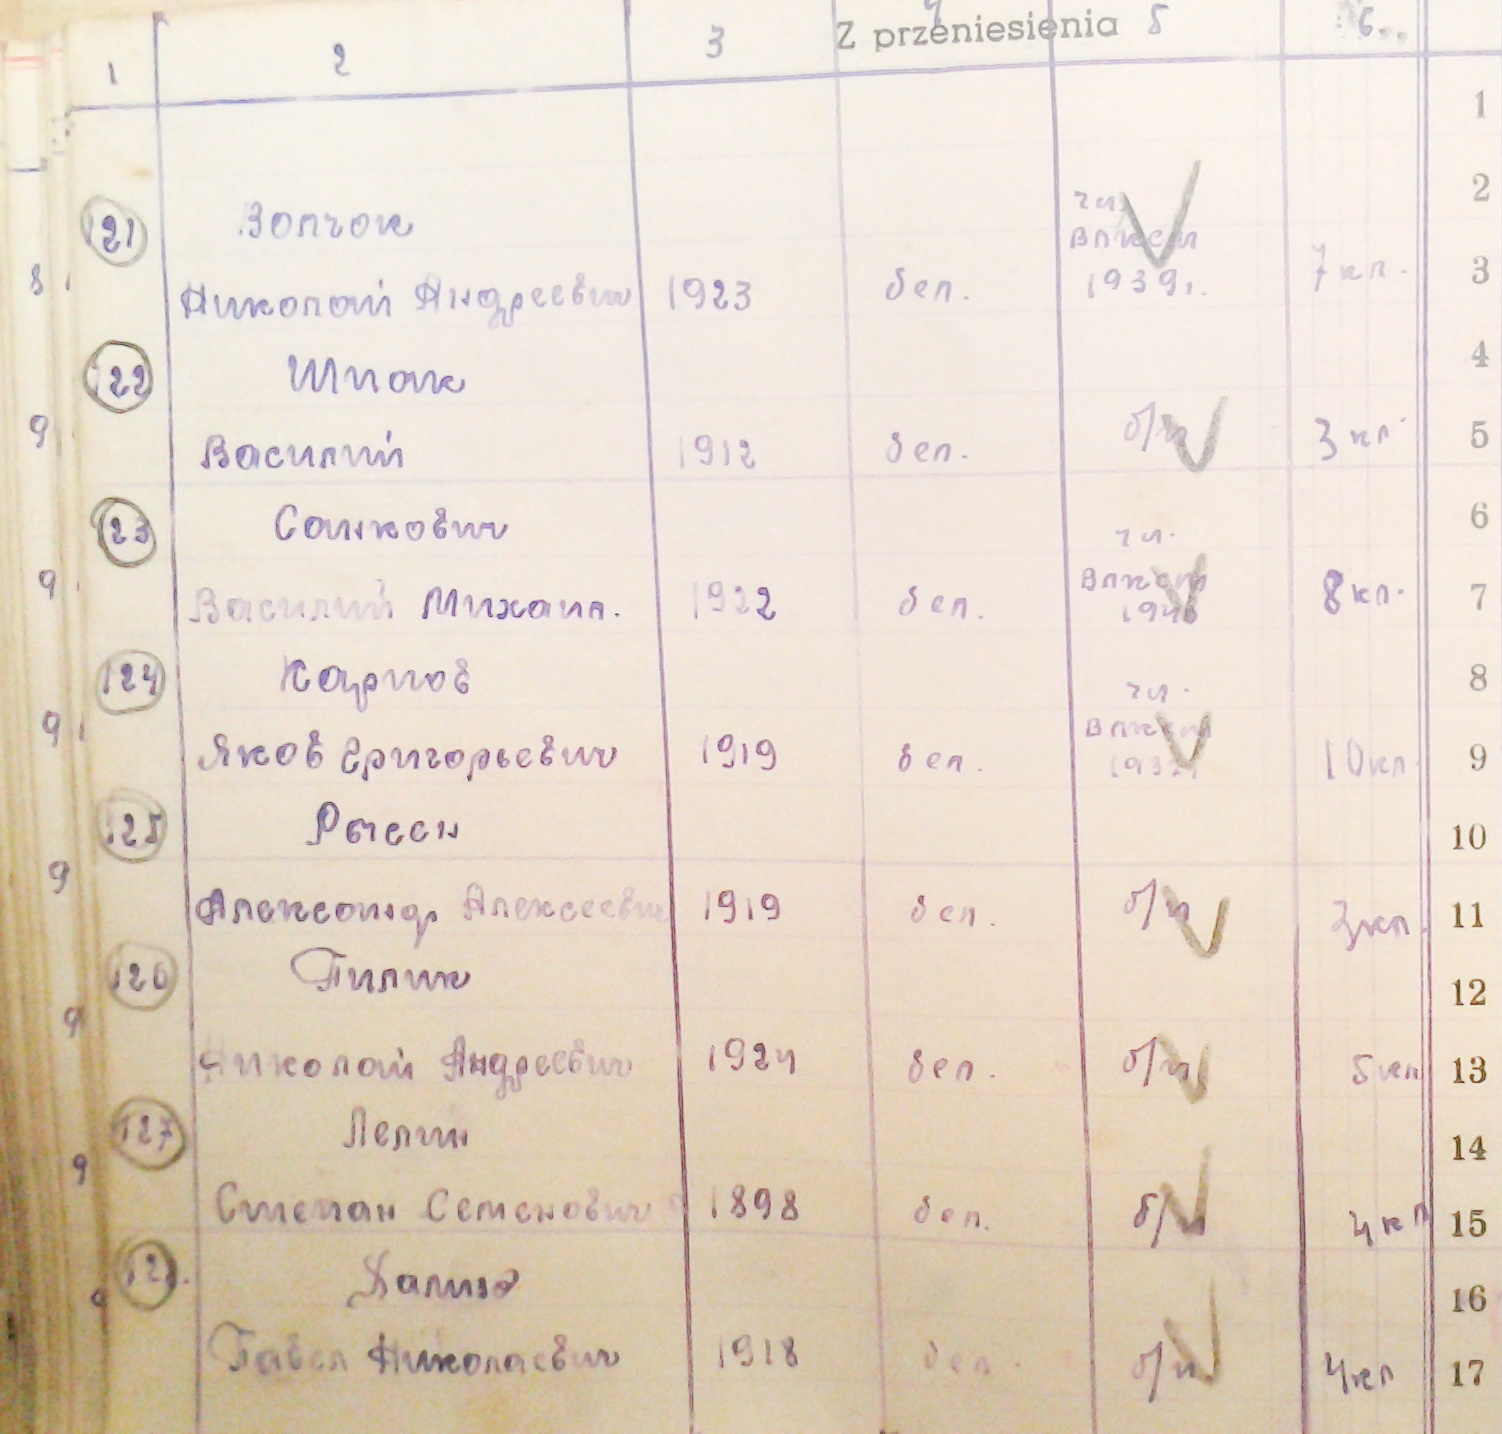 1 2 3 Z przeniesienia 4 5 6
1
2
121 Волчок чл.
ВЛКСМ
8 Николай Андреевич 1923 бел. 1939г. 7 кл. 3
122 Шпак 4
9 Василий 1912 бел. б/п 3 кл. 5
123 Санкович чл. 6
9 Василий Михаил. 1922 бел. ВЛКСМ 8 кл. 7
124 Карпов чл. 8
9 Яков Григорьевич 1919 бел. ВЛКСМ 10 кл. 9
125 Рысен 10
9 Александр Алексеевич 1919 бел. б/п 3 кл. 11
126 Пилик 12
9 Николай Андреевич 1924 бел. б/п 5 кл. 13
127 Лелин 14
9 Степан Семенович 1898 бел. б/п 4 кл. 15
16
9 Павел Николаевич 1918 бел. б/п 4 кл 17